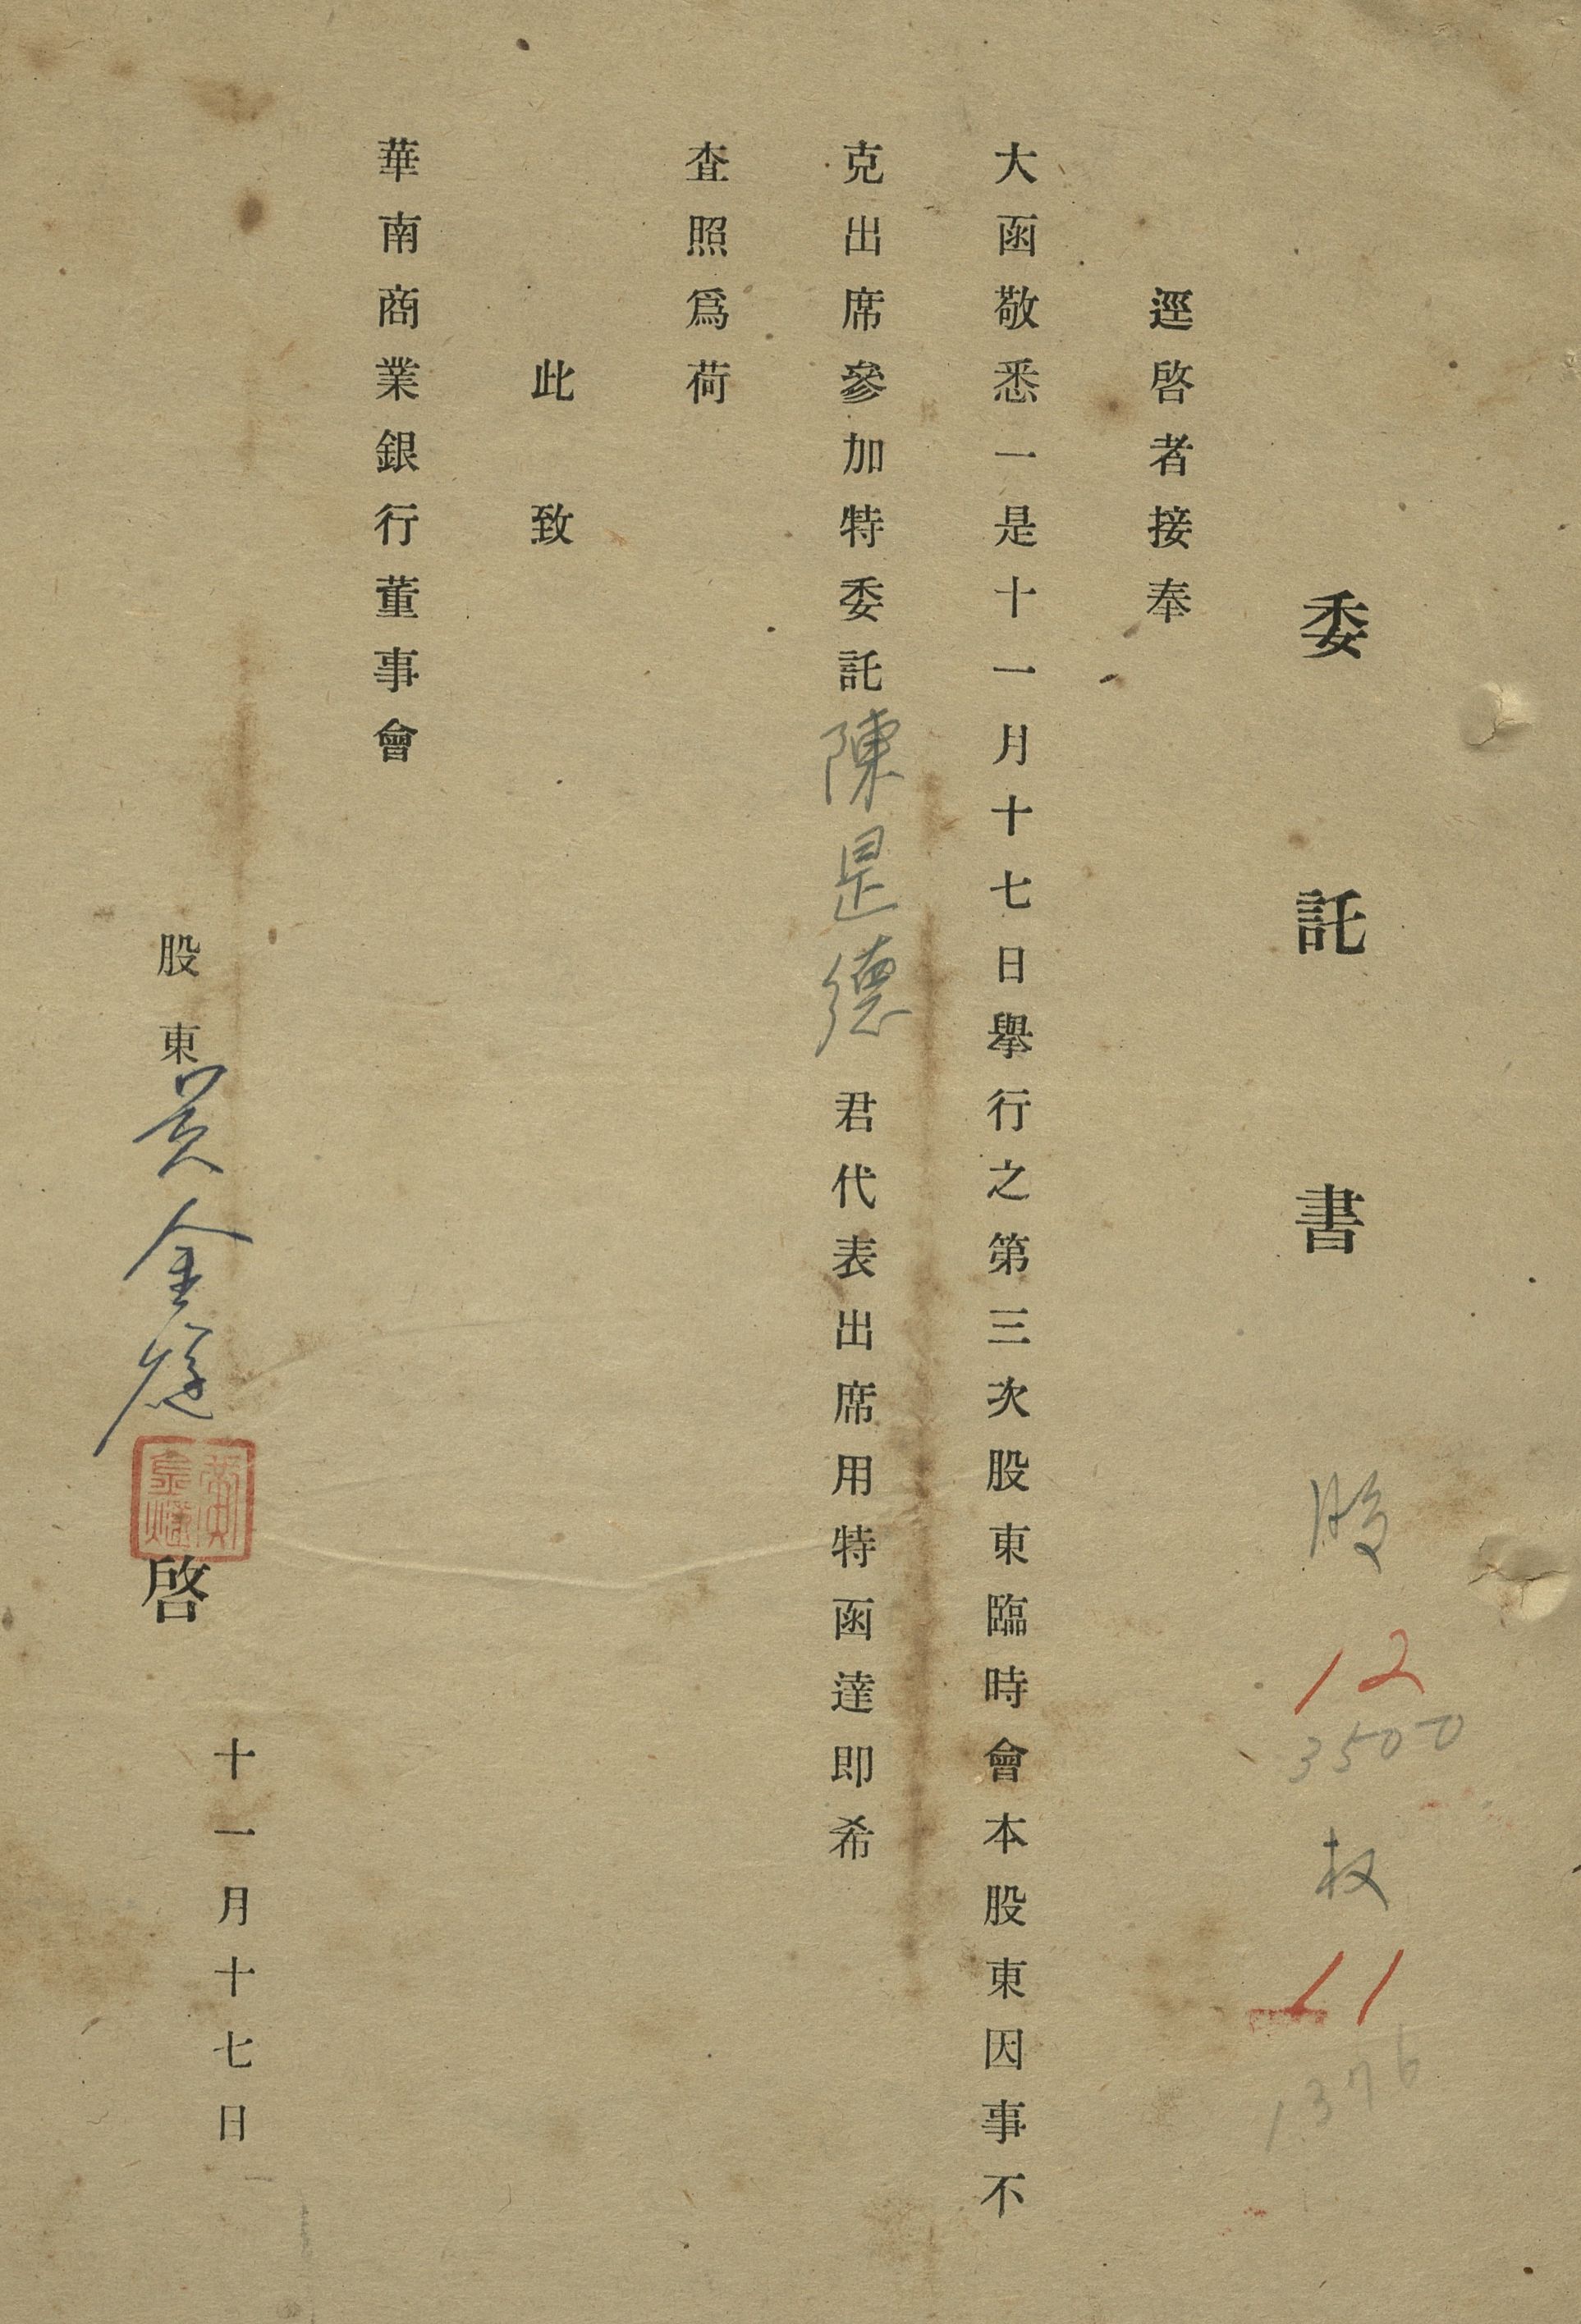 委託書
股
12
3500
权
11
1376
逕啓者接奉
大函敬悉一是十一月十七日舉行之第三次股東臨時會本股東因事不
克出席參加特委託陳是德君代表出席用特函達即希
査照爲荷
此致
華南商業銀行董事會
股東黄金
啓
十一月十七日